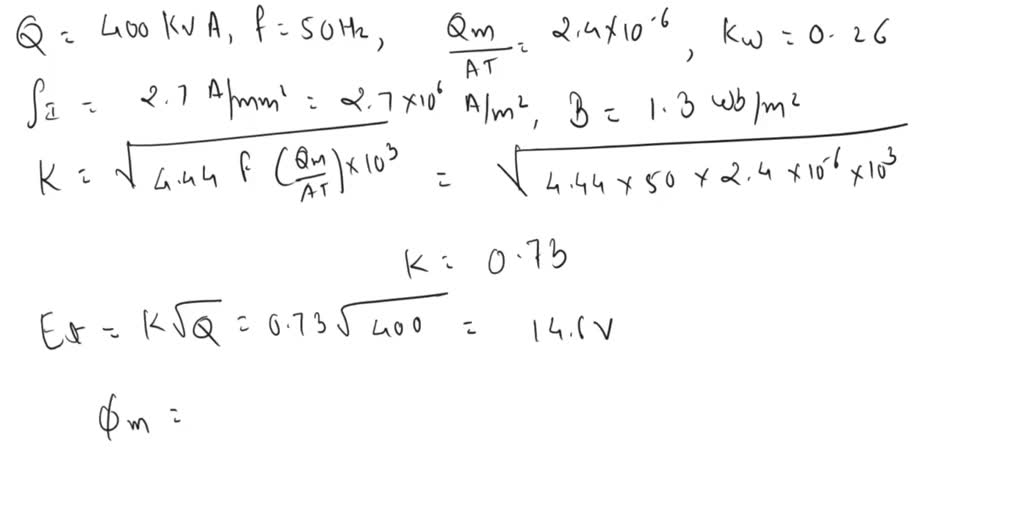 Q = 400 KVA, f = 50Hz, Qm/AT = 2.4×10⁻⁶, Kw = 0.26
∫I = 2.7 A/mm² = 2.7×10⁶ A/m², B = 1.3 wb/m²
K = √(4.44 f (Qm/AT)×10³) = √(4.44 × 50 × 2.4 ×10⁻⁶ ×10³)
K = 0.73
Et = K√Q = 0.73√400 = 14.6V
ϕm =